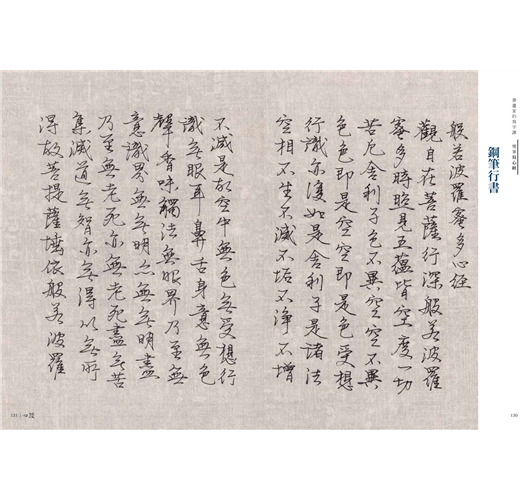 鋼筆行書
般若波羅蜜多心經
觀自在菩薩行深般若波羅
蜜多時照見五蘊皆空度一切
苦厄舍利子色不異空空不異
色色即是空空即是色受想
行識亦復如是舍利子是諸法
空相不生不滅不垢不淨不增
130
不減是故空中無色無受想行
識無眼耳鼻舌身意無色
聲香味觸法無眼界乃至無
意識界無無明亦無無明盡
乃至無老死亦無老死盡無苦
集滅道無智亦無得以無所
得故菩提薩埵依般若波羅
131